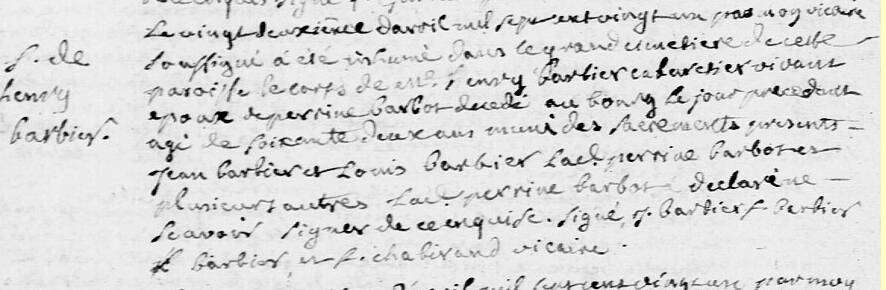 Le vingt deuxième d'avril mil sept cent vingt un par moy vicaire
S. de
soussigné a été inhumé dans le grand cimetiere de cette
henry
paroisse le corps de me. henry barbier cabarctier vivant
barbier.
epoux de perrine barbot decedé au bourg le jour precedent
agé de soixante deux ans muni des sacrements presents
jean barbier et Louis barbier Lad. perrine barbot et
plusieurs autres Lad. perrine barbot a declaré ne
scavoir signer de ce enquise. signé, J. barbier f. barbier
barbier, et f. chabirand vicaire.
mil sept cent vingt un par moy